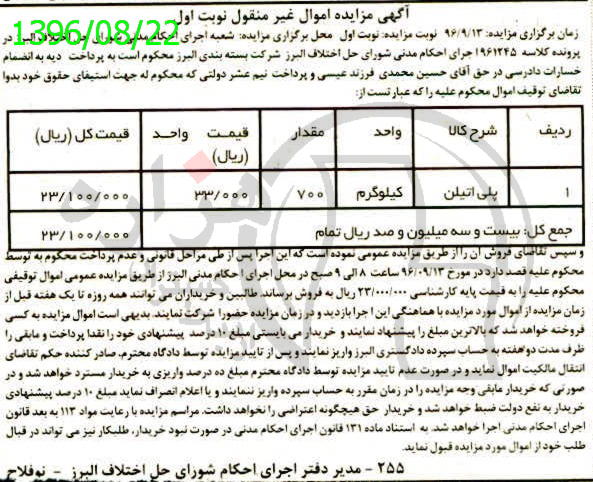 آگهی مزایده اموال غیر منقول نوبت اول
1396/08/22
زمان برگزاری مزایده: ۹۶/۹/۱۳ نوبت مزایده: نوبت اول محل برگزاری مزایده: شعبه اجرای احکام مدنی شورای حل اختلاف البرز در
پرونده کلاسه ۱۹۶۱۲۴۵ اجرای احکام مدنی شورای حل اختلاف البرز شرکت بسته بندی البرز محکوم است به پرداخت دیه به انضمام
خسارات دادرسی در حق آقای حسین محمدی فرزند عیسی و پرداخت نیم عشر دولتی که محکوم له جهت استیفای حقوق خود بدوا
تقاضای توقیف اموال محکوم علیه را که عبارتست از:
ردیف شرح کالا واحد مقدار قیمت واحد (ریال) قیمت کل (ریال)
۱ پلی اتیلن کیلوگرم ۷۰۰ ۳۳/۰۰۰ ۲۳/۱۰۰/۰۰۰
جمع کل: بیست و سه میلیون و صد ریال تمام ۲۳/۱۰۰/۰۰۰
و سپس تقاضای فروش آن را از طریق مزایده عمومی نموده است که این اجرا پس از طی مراحل قانونی و عدم پرداخت محکوم به توسط
محکوم علیه قصد دارد در مورخ ۹۶/۰۹/۱۳ ساعت ۸ الی ۹ صبح در محل اجرای احکام مدنی البرز از طریق مزایده عمومی اموال توقیفی
محکوم علیه را به قیمت پایه کارشناسی ۲۳/۰۰۰/۰۰۰ ریال به فروش برساند. طالبین و خریداران می توانند همه روزه تا یک هفته قبل از
زمان مزایده از اموال مورد مزایده با هماهنگی این اجرا بازدید و در زمان مزایده حضورا شرکت نمایند. بدیهی است اموال مزایده به کسی
فروخته خواهد شد که بالاترین مبلغ را پیشنهاد نمایند و خریدار می بایستی مبلغ ۱۰ درصد پیشنهادی خود را نقدا پرداخت و مابقی را
ظرف مدت دو هفته به حساب سپرده دادگستری البرز واریز نمایند و پس از تایید مزایده توسط دادگاه محترم، صادر کننده حکم تقاضای
انتقال مالکیت اموال نماید و در صورت عدم تایید مزایده توسط دادگاه محترم مبلغ ده درصد واریزی به خریدار مسترد خواهد شد و در
صورتی که خریدار مابقی وجه مزایده را در زمان مقرر به حساب سپرده واریز ننمایند و یا اعلام انصراف نماید مبلغ ۱۰ درصد پیشنهادی
خریدار به نفع دولت ضبط خواهد شد و خریدار حق هیچگونه اعتراضی را نخواهد داشت. مراسم مزایده با رعایت مواد ۱۱۳ به بعد قانون
اجرای احکام مدنی اجرا خواهد شد. به استناد ماده ۱۳۱ قانون اجرای احکام مدنی در صورت نبود خریدار، طلبکار نیز می تواند در قبال
طلب خود از اموال مورد مزایده قبول نماید.
۲۵۵ - مدیر دفتر اجرای احکام شورای حل اختلاف البرز - نوفلاح